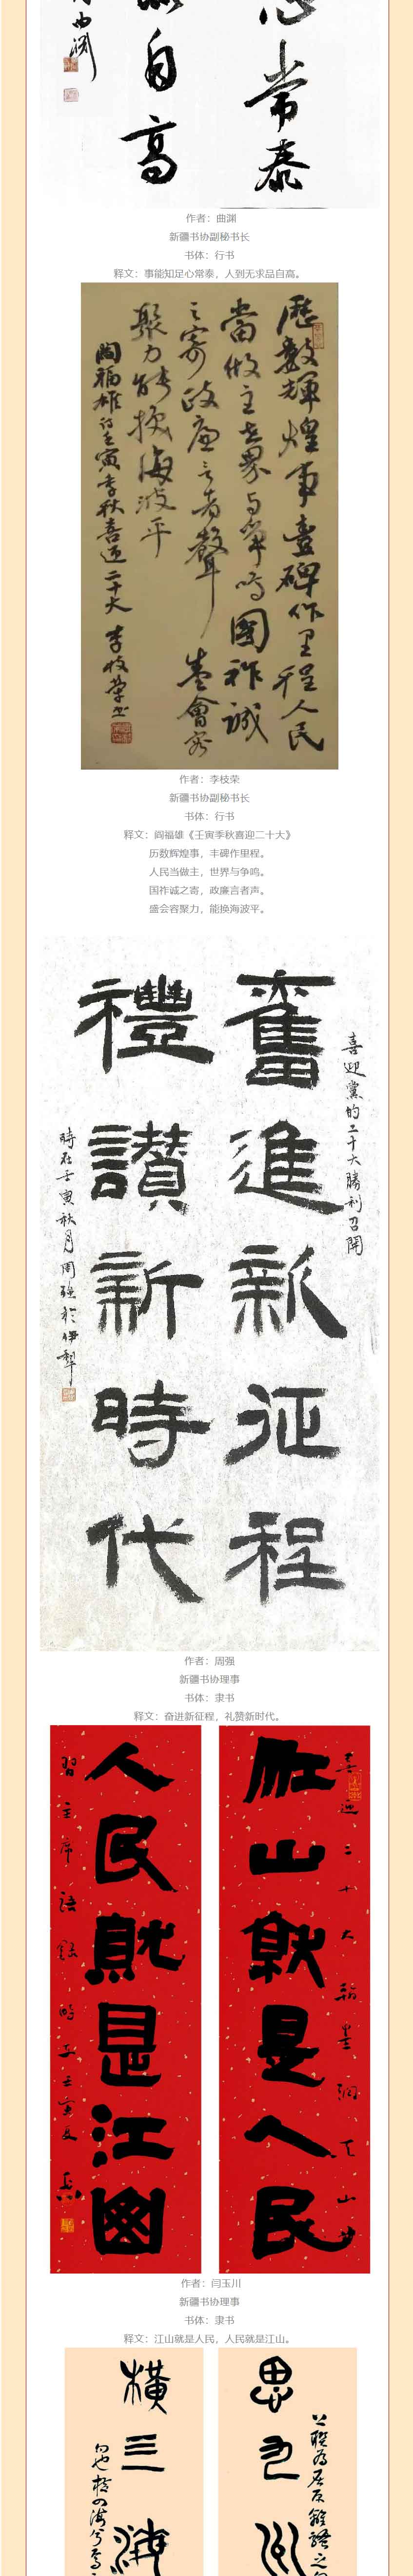 心常泰
自高
曲渊
作者：曲渊
新疆书协副秘书长
书体：行书
释文：事能知足心常泰，人到无求品自高。
歷數輝煌事豐碑作里程人民
當做主世界与争鸣國祚诚
之寄政廉言者聲 盛會容
聚力能换海波平
阎福雄诗壬寅季秋喜迎二十大 李枝荣书
作者：李枝荣
新疆书协副秘书长
书体：行书
释文：阎福雄《壬寅季秋喜迎二十大》
历数辉煌事，丰碑作里程。
人民当做主，世界与争鸣。
国祚诚之寄，政廉言者声。
盛会容聚力，能换海波平。
喜迎黨的二十大勝利召開
奮進新征程
禮讃新時代
時在壬寅秋月周强於伊犁
作者：周强
新疆书协理事
书体：隶书
释文：奋进新征程，礼赞新时代。
喜迎二十大翰墨润天山
江山就是人民
人民就是江山
習主席語録
作者：闫玉川
新疆书协理事
书体：隶书
释文：江山就是人民，人民就是江山。
思
橫三海